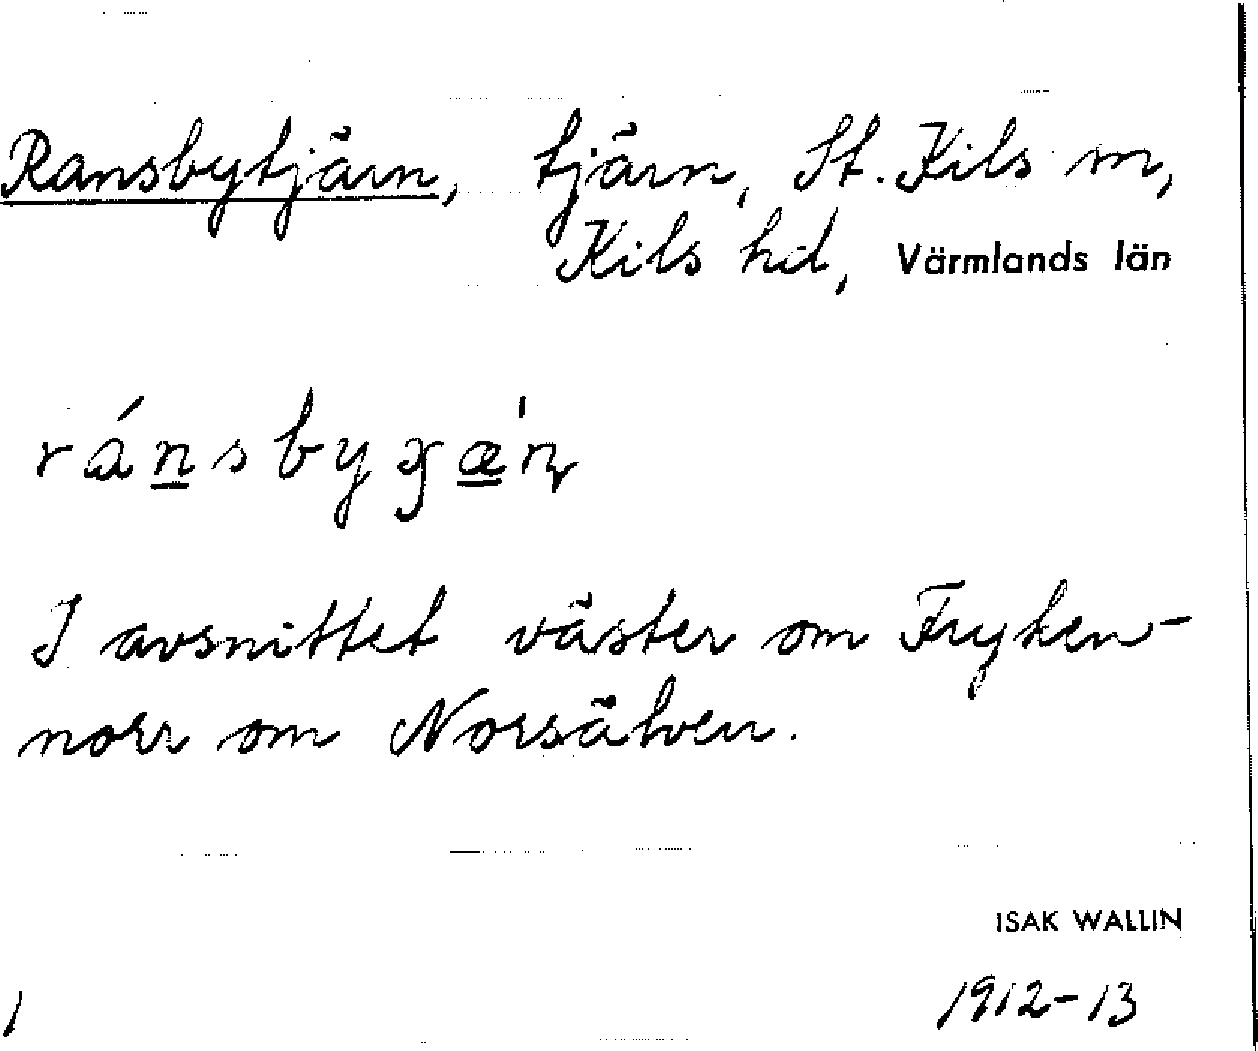 Ransbytjärn, tjärn, St. Kils m,
Kils hd, Värmlands län
I avsnittet väster om Fryken-
norr om Norsälven.
ISAK WALLIN
1912-13
1